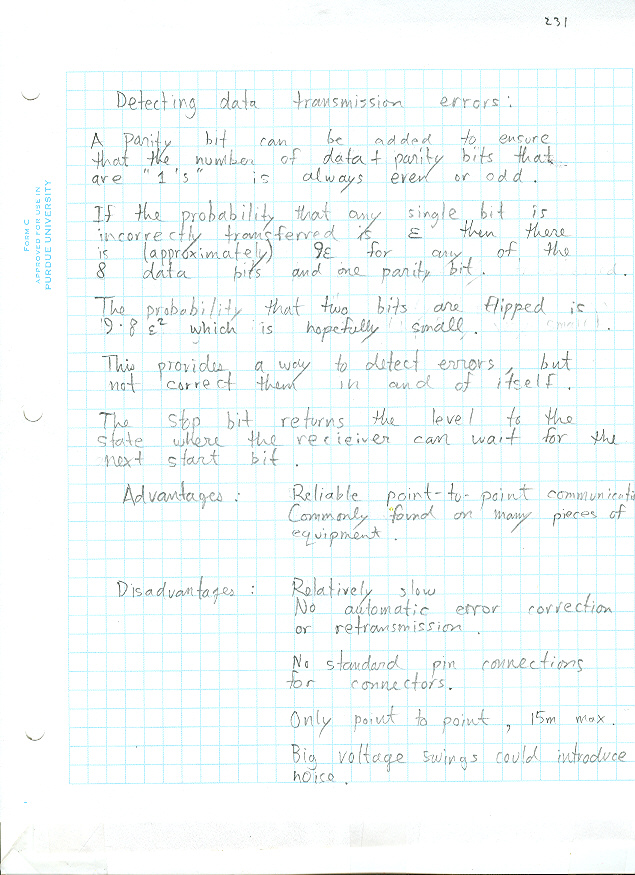 231
FORM C
APPROVED FOR USE IN
PURDUE UNIVERSITY
Detecting data transmission errors:
A parity bit can be added to ensure
that the number of data + parity bits that
are "1's" is always even or odd.
If the probability that any single bit is
incorrectly transferred is ε then there
is (approximately) 9ε for any of the
8 data bits and one parity bit.
The probability that two bits are flipped is
9·8 ε² which is hopefully small.
This provides a way to detect errors, but
not correct them in and of itself.
The stop bit returns the level to the
state where the recieiver can wait for the
next start bit.
Advantages: Reliable point-to-point communicati
Commonly found on many pieces of
equipment.
Disadvantages: Relatively slow
No automatic error correction
or retransmission.
No standard pin connections
for connectors.
Only point to point, 15m max.
Big voltage swings could introduce
noise.